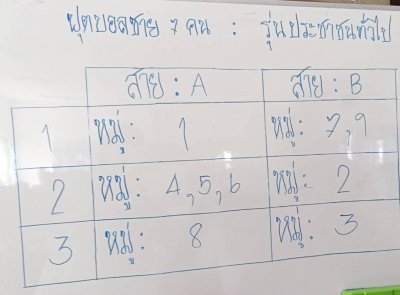 ฟุตบอลชาย 7 คน : รุ่นประชาชนทั่วไป
สาย : A สาย : B
1 หมู่: 1 หมู่: 7,9
2 หมู่: 4,5,6 หมู่: 2
3 หมู่: 8 หมู่: 3